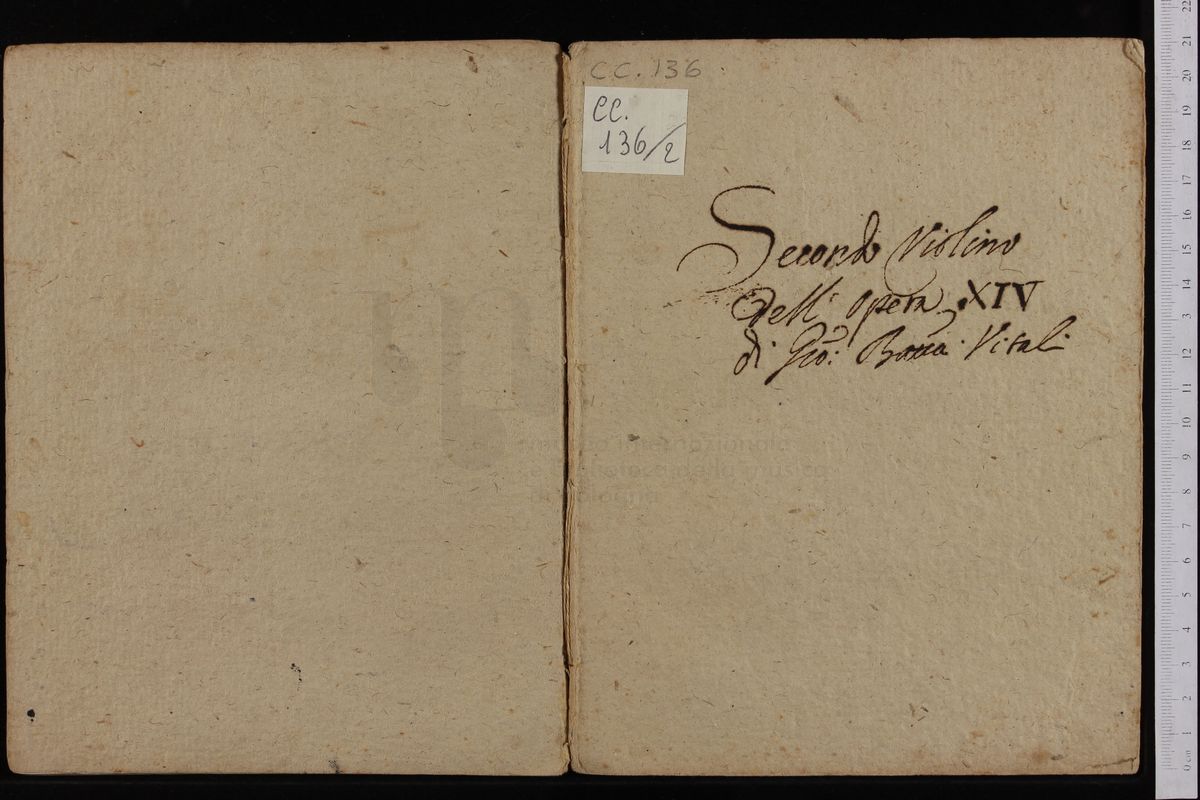 CC. 136
CC.
136/2
Secondo Violino
dell' Opera XIV
di Gio: Batta Vitali
museo internazionale
e biblioteca della musica
di bologna
22
21
20
19
18
17
16
15
14
3
12
11
10
9
8
7
6
5
4
3
2
1
0 cm